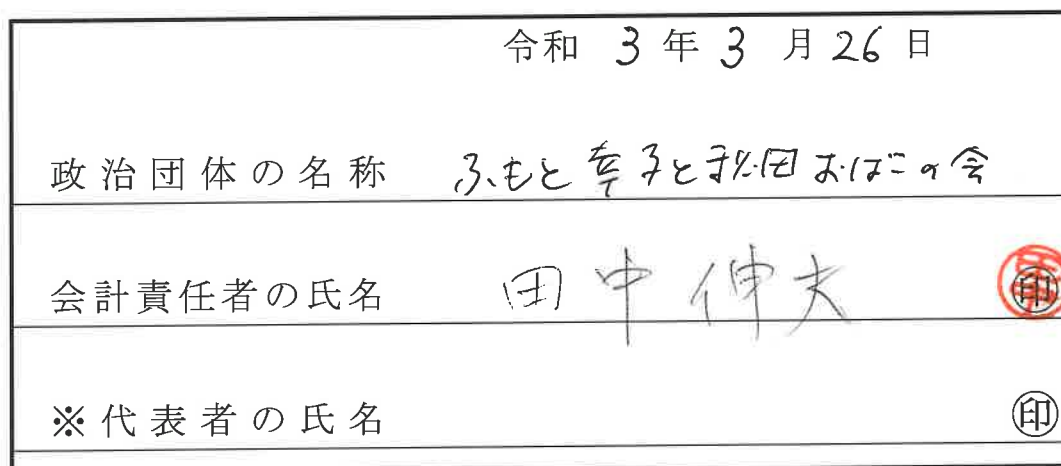 令和 3 年 3 月 26 日
政治団体の名称 ふもと幸子と秋田おばこの会
会計責任者の氏名 田中伸夫 ㊞
※代表者の氏名 ㊞